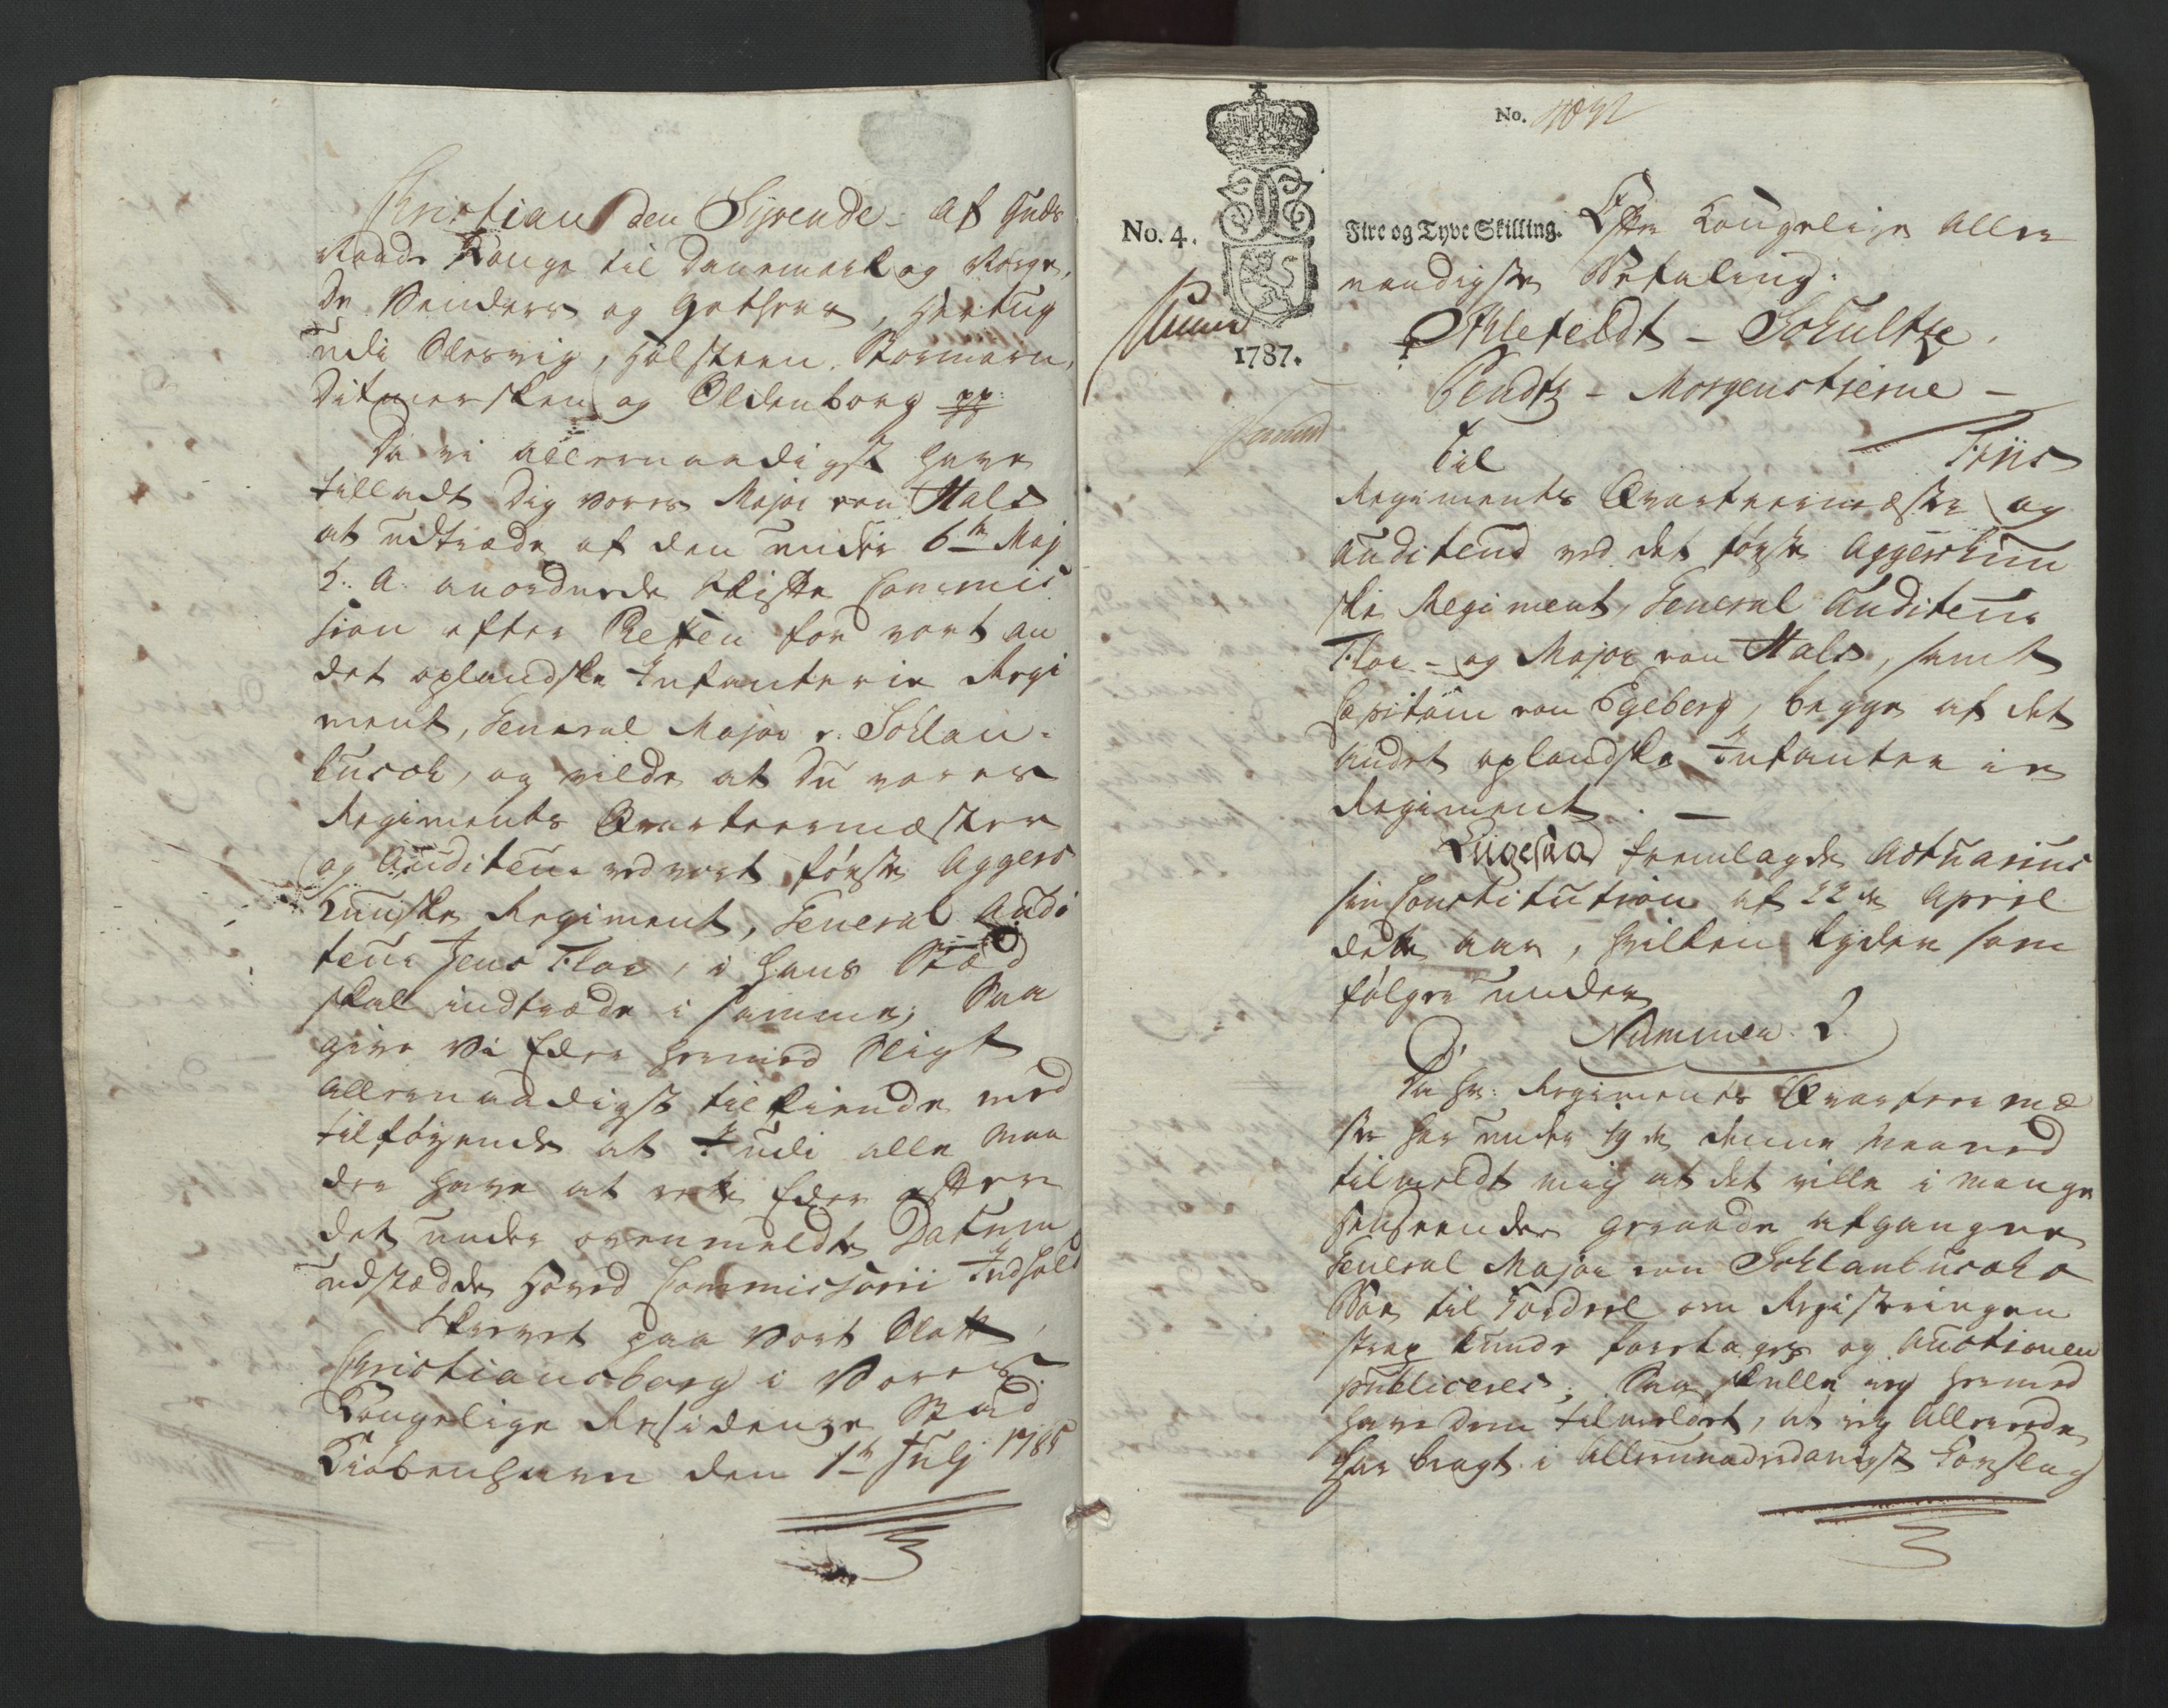 Christian den Syvende af Guds
Naade Konge til Danemark og Norge,
De Venders og Gothers, Hertug
udi Slesvig, Holsteen, Stormarn,
Ditmersken og Oldenborg pp:
Da vi allernaadigst have
tilladt dig vores Major von Hals
at udtræde af den under 6te Maj
h: a: anordnede Skifte Commis
sion efter Chefen for vort an
det oplandske Infanterie Regi
ment, General Major v. Schlan-
busch, og vilde at du vores
Regiments Qvarteermæster
og Auditeur ved vort første Aggers
huuske Regiment, General Audi
teur Jens Flor, i hans Stæd
skal indtræde i samme; Saa
give Vi Eder hermed sligt
allernaadigst tilkiende med
tilføyende at I udi alle Maa
der have at rette Eder efter
det under ovenmeldte Datum
udstædde Hoved Commissorii Indhold
Skrevet paa Vort Slott
Christiansborg i Vores
Kongelige Residenze Stad
Kiøbenhavn den 1te Julj 1785
No.
No. 4.
1787.
Fire og Tyve Skilling. Efter Kongelige Aller
naadigste Befaling:
Ahlefeldt - Schultze.
Bendtz - Morgenstierne -
Friis
Til
Regiments Qvarteermæster og
Auditeur ved det første Aggershuu
ske Regiment, General Auditeur
Flor - og Major von Hals, samt
Capitain von Egeberg, begge af det
andet oplandske Infanterie
Regiment. —
Liigesaa fremlagde Actuarius
sin Constitution af 22de April
dette aar, hvilken lyder som
følger under
Nummer 2.
Da Hr: Regiments Qvarteermæ
ster har under 19de denne Maaned
tilmeldt mig at det ville i mange
Henseender geraade afgangne
General Major von Schlanbuschs
Boe til Fordeel om Registeringen
strax kunde foretages og Auctionen
publiceres; Saa skulle jeg hermed
have dem tilmeldet, at jeg allereede
har bragt i allerunderdanigst Forslag